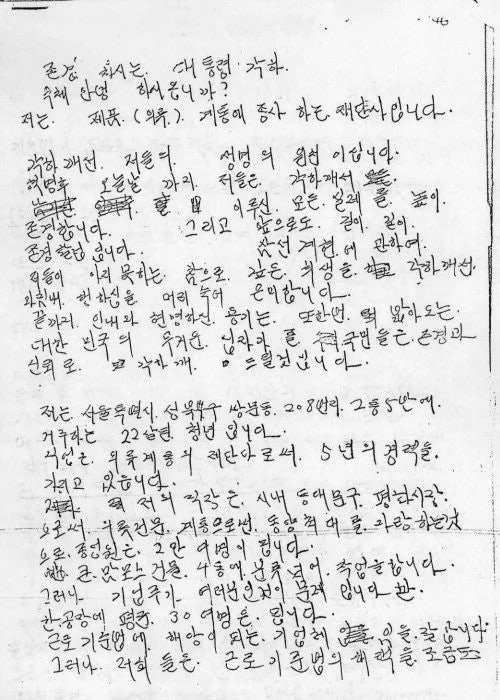 존경 하시는. 대통령 각하.
옥체 안녕 하시옵니까?
저는. 제품. (의류). 계통에 종사 하는. 재단사입니다.
각하께선. 저들의. 생명의 원천 이십니다.
혁명후 오늘날 까지. 저들은. 각하께서
이루신. 모든. 일에 를. 높이.
존경합니다. 그리고 앞으로도. 길이 길이.
존경할겁니다. 삼선 개헌. 에 관하여.
저들이 아지 못하는. 참으로. 깊은. 희생을. 각하께선.
마침내. 행하심을. 머리 숙여 은미합니다.
끝까지. 인내와 현명하신. 용기는. 또한번. 밝아오는.
대한 민국의 무거운. 십자가 를. 국민들은. 존경과
신뢰 로. 각하께. 드릴것입니다.
저는. 서울특별시. 성북구 쌍문동. 208번지. 2통 5반에.
거주하는 22살된. 청년 입니다.
직업은. 의류계통의 재단사로써. 5년의 경력을.
가지고 있습니다.
저의 직장은. 시내 동대문구. 평화시장.
으로써. 의류전문. 계통으로썬. 동양 최대를. 자랑하는것
으로. 종업원은. 2만 여명이 됩니다.
큰. 맘모스 건물. 4동에 분류되어. 작업을합니다.
그러나 기업주가 여러분인것이 문제 입니다 만.
한 공장에 평균. 30 여명은. 됩니다.
근로 기준법에. 해당이 되는. 기업체 임을. 잘 압니다.
그러나. 저희 들은. 근로기준법의 혜택을. 조금도